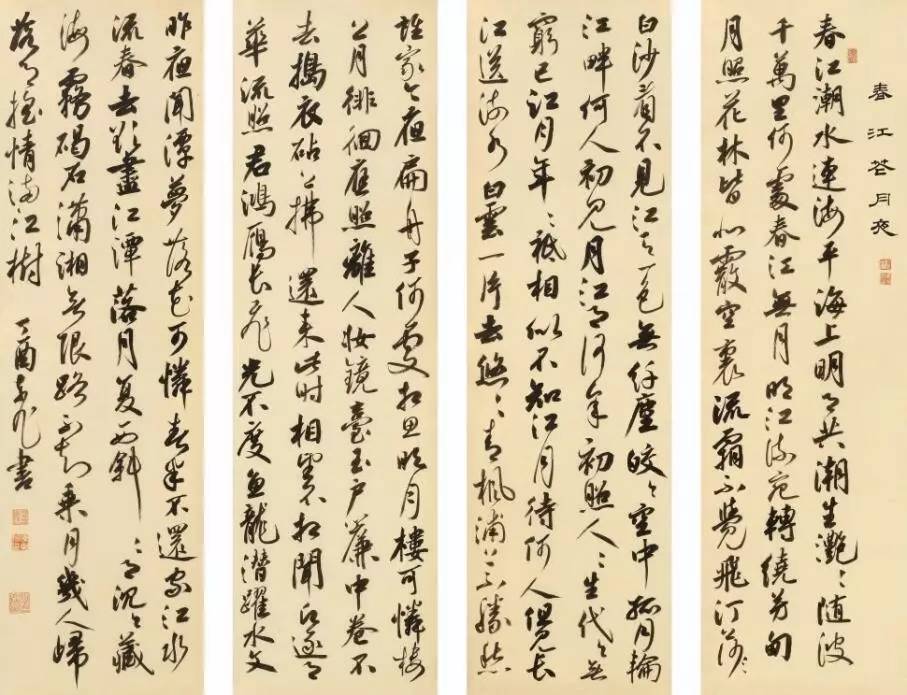 春江花月夜
春江潮水連海平海上明月共潮生灩ゝ随波
千萬里何處春江無月明江流宛轉繞芳甸
月照花林皆似霰空裏流霜不覺飛汀
白沙看不見江天一色無纖塵皎ゝ空中孤月輪
江畔何人初見月江月何年初照人ゝ生代ゝ無
窮已江月年ゝ祇相似不知江月待何人但見長
江送流水白雲一片去悠ゝ青楓浦上不勝愁
誰家今夜扁舟子何處相思明月樓可憐樓
上月徘徊應照離人妝鏡臺玉戶簾中卷不
去搗衣砧上拂還來此時相望不相聞願逐月
華流照君鴻雁長飛光不度魚龍潛躍水文
昨夜閑潭夢落花可憐春半不還家江水
流春去欲盡江潭落月復西斜ゝ月沉ゝ藏
海霧碣石瀟湘無限路不知乘月幾人歸
落月搖情滿江樹 丁酉 書